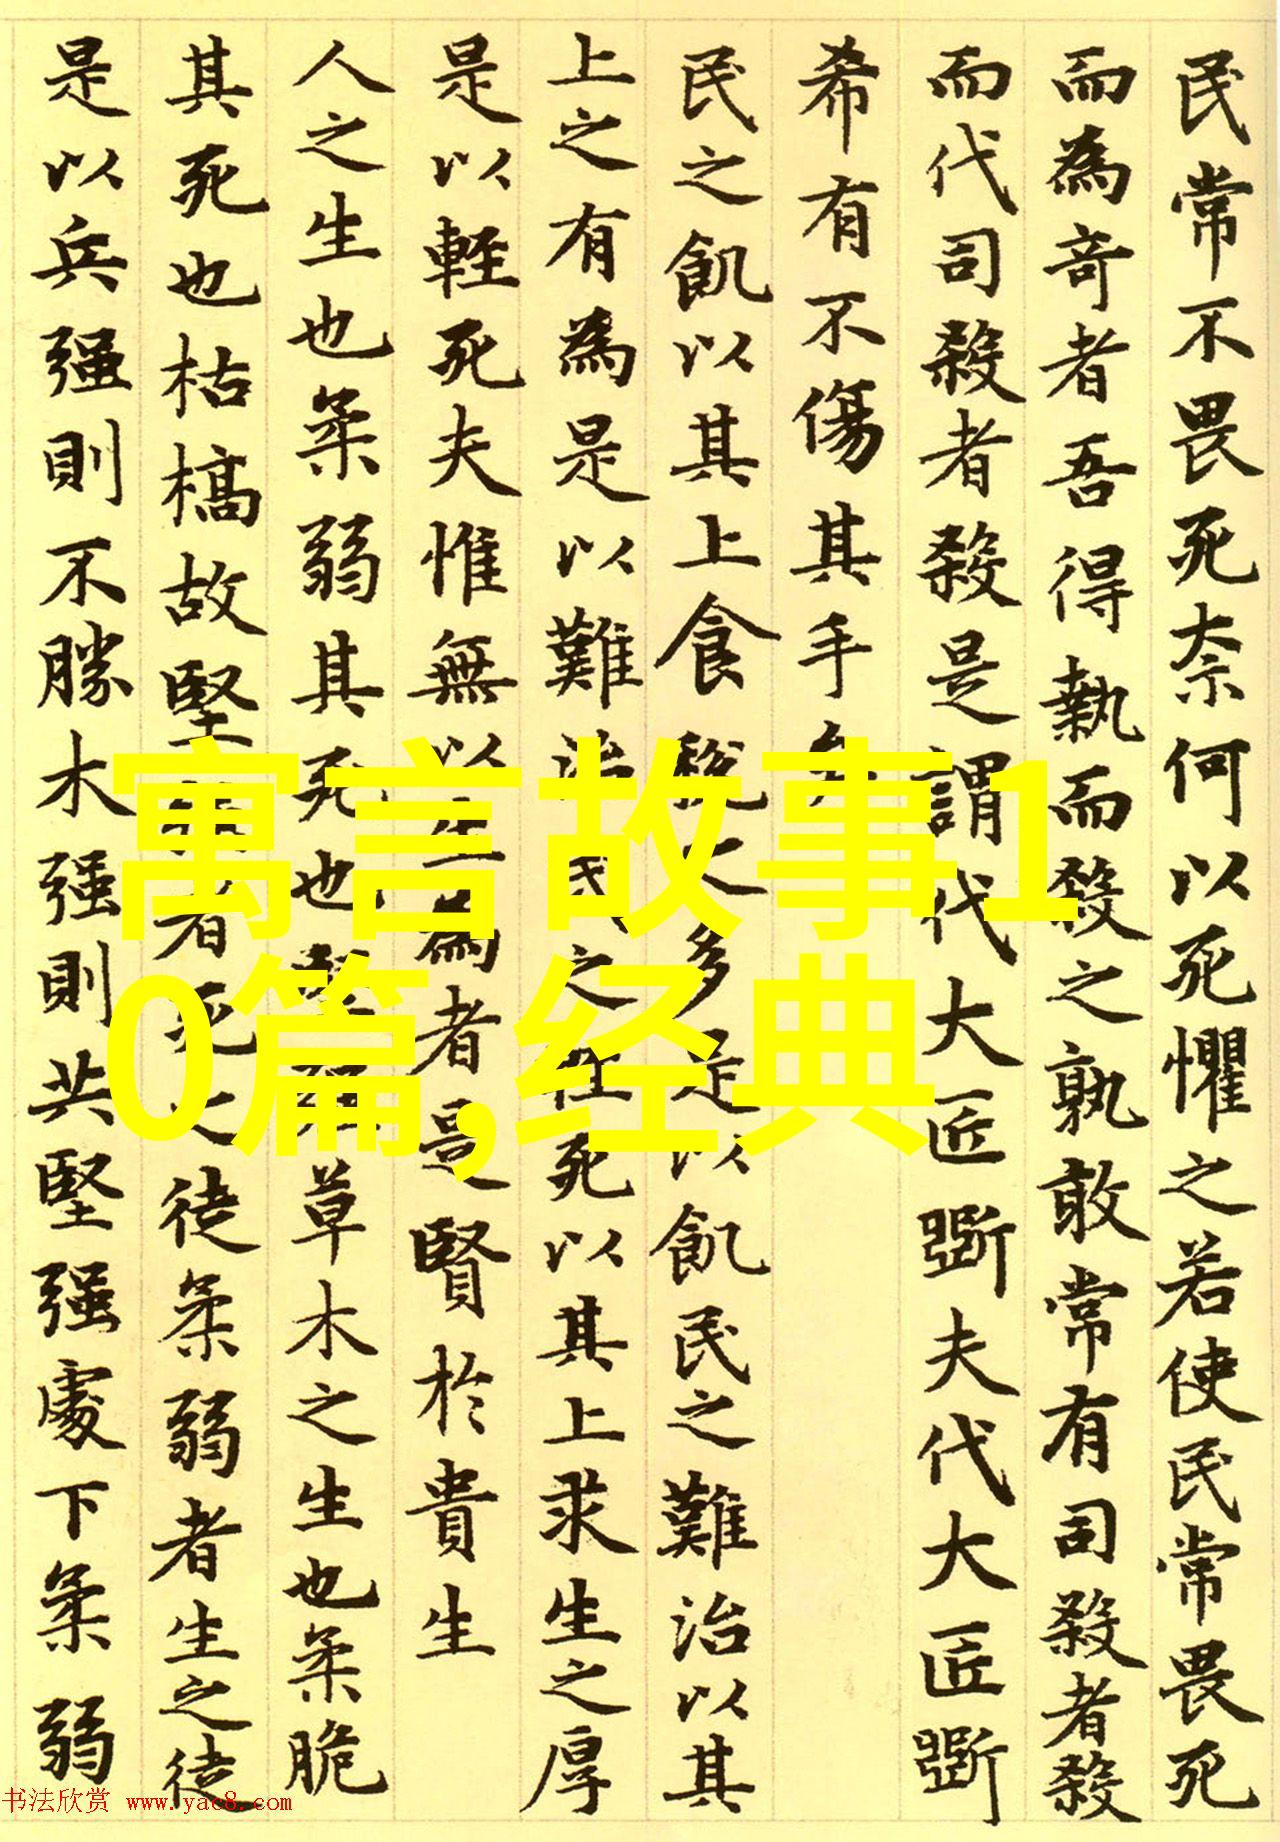 民常不畏死奈何以死懼之若使民常畏死
而為奇者吾得執而殺之孰敢常有司殺者殺
而代司殺者殺是謂代大匠斲夫代大匠斲
希有不傷其手矣
民之飢以其上食稅之多是以飢民之難治以其
上之有為是以難治民之輕死以其上求生之厚
是以輕死夫惟無以生為者是賢於貴生
人之生也柔弱其死也堅强草木之生也柔脆
其死也枯槁故堅强者死之徒柔弱者生之徒
是以兵强則不勝木强則共堅强處下柔弱
寓言故事1
0篇,经典
书法欣赏 www.yac8.com